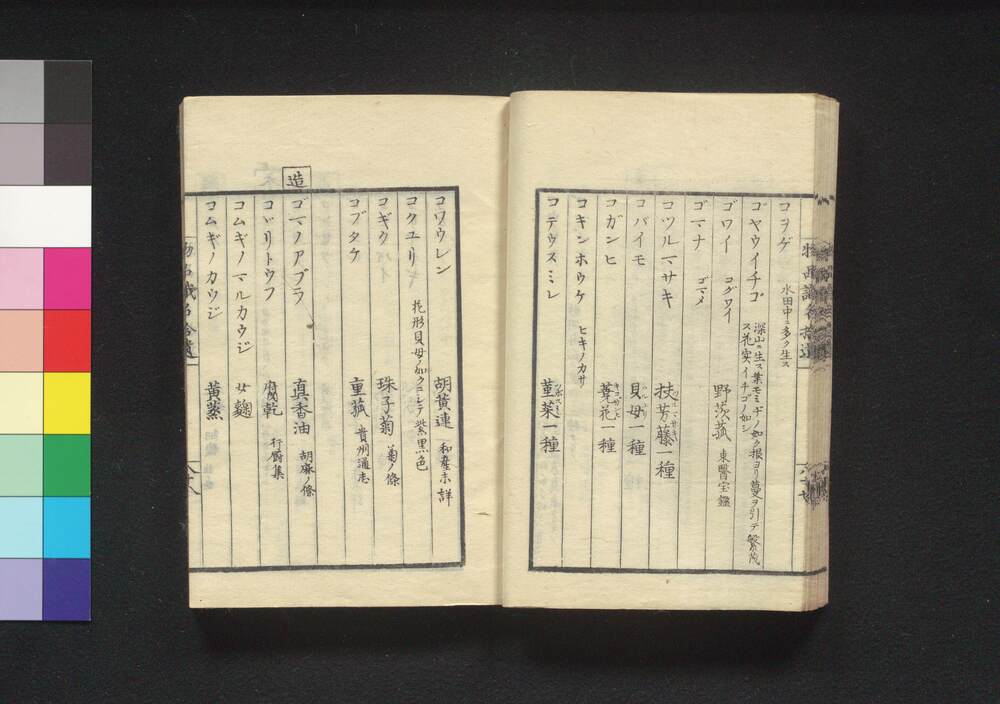 コヲゲ 水田中ニ多ク生ス
ゴヤウイチゴ 深山ニ生ス葉モミヂノ如ク根ヨリ蔓ヲ引テ繁茂
ス花実イチゴノ如シ
ゴワイ コグワイ 野茨菰 東醫宝鑑
ゴマナ ゴマメ
コツルマサキ 扶芳藤一種
コバイモ 貝母一種
コガンヒ 蕘花一種
コキンホウケ ヒキノカサ
コデウスミレ 菫菜一種
コワウレン 胡黄連 和産未詳
コクユリ 花形貝母ノ如クニシテ紫黒色
コギク 珠子菊 菊ノ條
コブタケ 重菰 貴州通志
造
ゴマノアブラ 真香油 胡麻ノ條
コヾリトウフ 腐乾 行厨集
コムギノマルカウジ 女麹
コムギノカウジ 黄蒸
物品識名拾遺